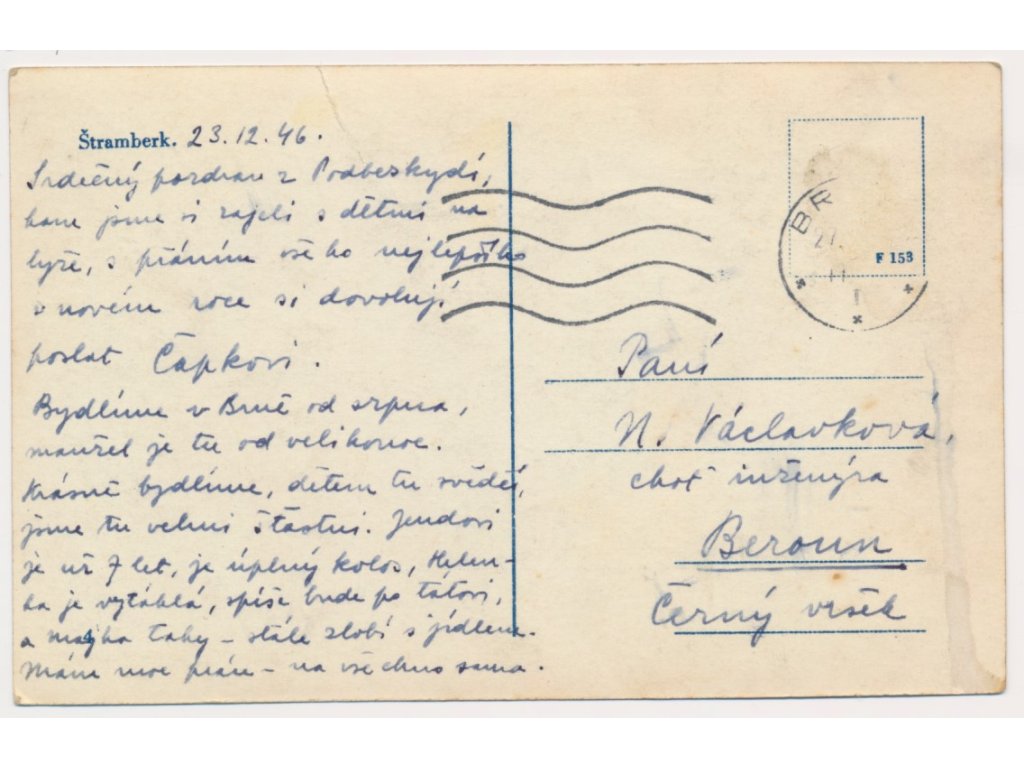 Štramberk. 23.12.46.
Srdečný pozdrav z Podbeskydí,
kam jsme si zajeli s dětmi na
lyže, s přáním vše ho nejlepšího
v novém roce si dovolují
poslat Čapkovi.
Bydlíme v Brně od srpna,
manžel je tu od velikonoc.
Krásně bydlíme, dětem tu svědčí,
jsme tu velmi šťastni. Jendovi
je už 7 let, je úplný kolos, Helen-
ka je vytáhlá, spíše bude po tátovi,
a taky – stále zlobí s jídlem.
Mám moc práce – na všechno sama.
BR
27.
F 153
Paní
N. Václavková,
choť inženýra
Beroun
Černý vršek